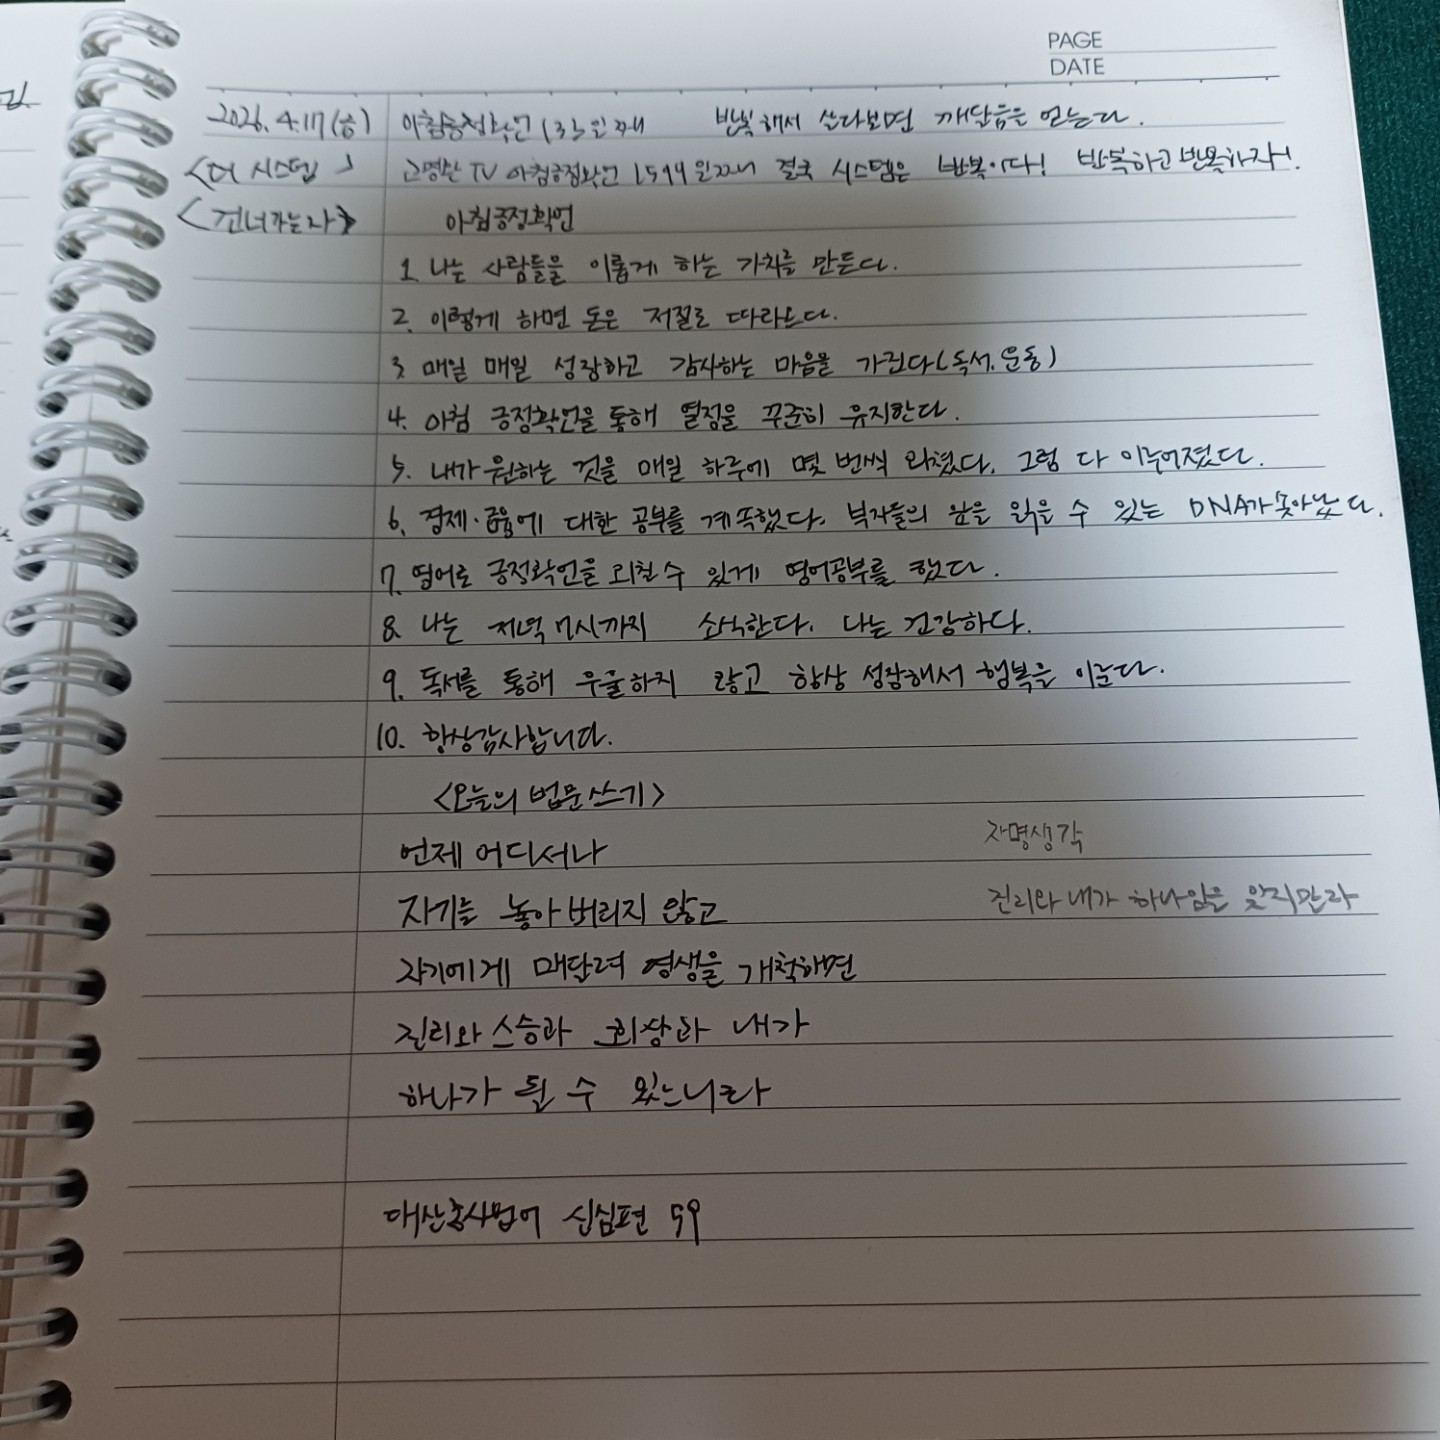 PAGE
DATE
2026. 4. 17 (금) 아침긍정확언 일째 반복해서 살다보면 깨달음을 얻는다.
<더 시스템> 고명환 TV 아침긍정확언 1594일째 결국 시스템은 반복이다! 반복하고 반복하자!
<건너가는자> 아침긍정확언
1. 나는 사람들을 이롭게 하는 가치를 만든다.
2. 이렇게 하면 돈은 저절로 따라온다.
3 매일 매일 성장하고 감사하는 마음을 가진다(독서.운동)
4. 아침 긍정확언을 통해 열정을 꾸준히 유지한다.
5. 내가 원하는 것을 매일 하루에 몇 번씩 외쳤다. 그럼 다 이루어졌다.
6. 경제.금융에 대한 공부를 계속했다. 부자들의 맘을 읽을 수 있는 DNA가 솟아났다.
7. 영어로 긍정확언을 외칠 수 있게 영어공부를 했다.
8. 나는 저녁 7시까지 소식한다. 나는 건강하다.
9. 독서를 통해 우울하지 않고 항상 성장해서 행복을 이룬다.
10. 항상감사합니다.
<오늘의 법문쓰기>
언제 어디서나 자명생각
자기를 놓아버리지 않고 진리와 내가 하나임을 잊지만라
자기에게 매달려 영생을 개척하면
진리와 스승과 회상과 내가
하나가 될 수 있느니라
대산종사법어 신심편 59